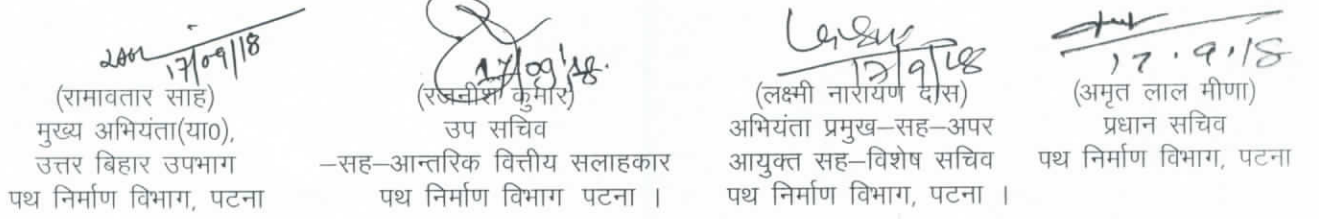 17/09/18
17/09/18.
17/9/18
17.9.18
(रामावतार साह)
मुख्य अभियंता(या०),
उत्तर बिहार उपभाग
पथ निर्माण विभाग, पटना
(रजनीश कुमार)
उप सचिव
–सह–आन्तरिक वित्तीय सलाहकार
पथ निर्माण विभाग पटना ।
(लक्ष्मी नारायण दास)
अभियंता प्रमुख–सह–अपर
आयुक्त सह–विशेष सचिव
पथ निर्माण विभाग, पटना ।
(अमृत लाल मीणा)
प्रधान सचिव
पथ निर्माण विभाग, पटना